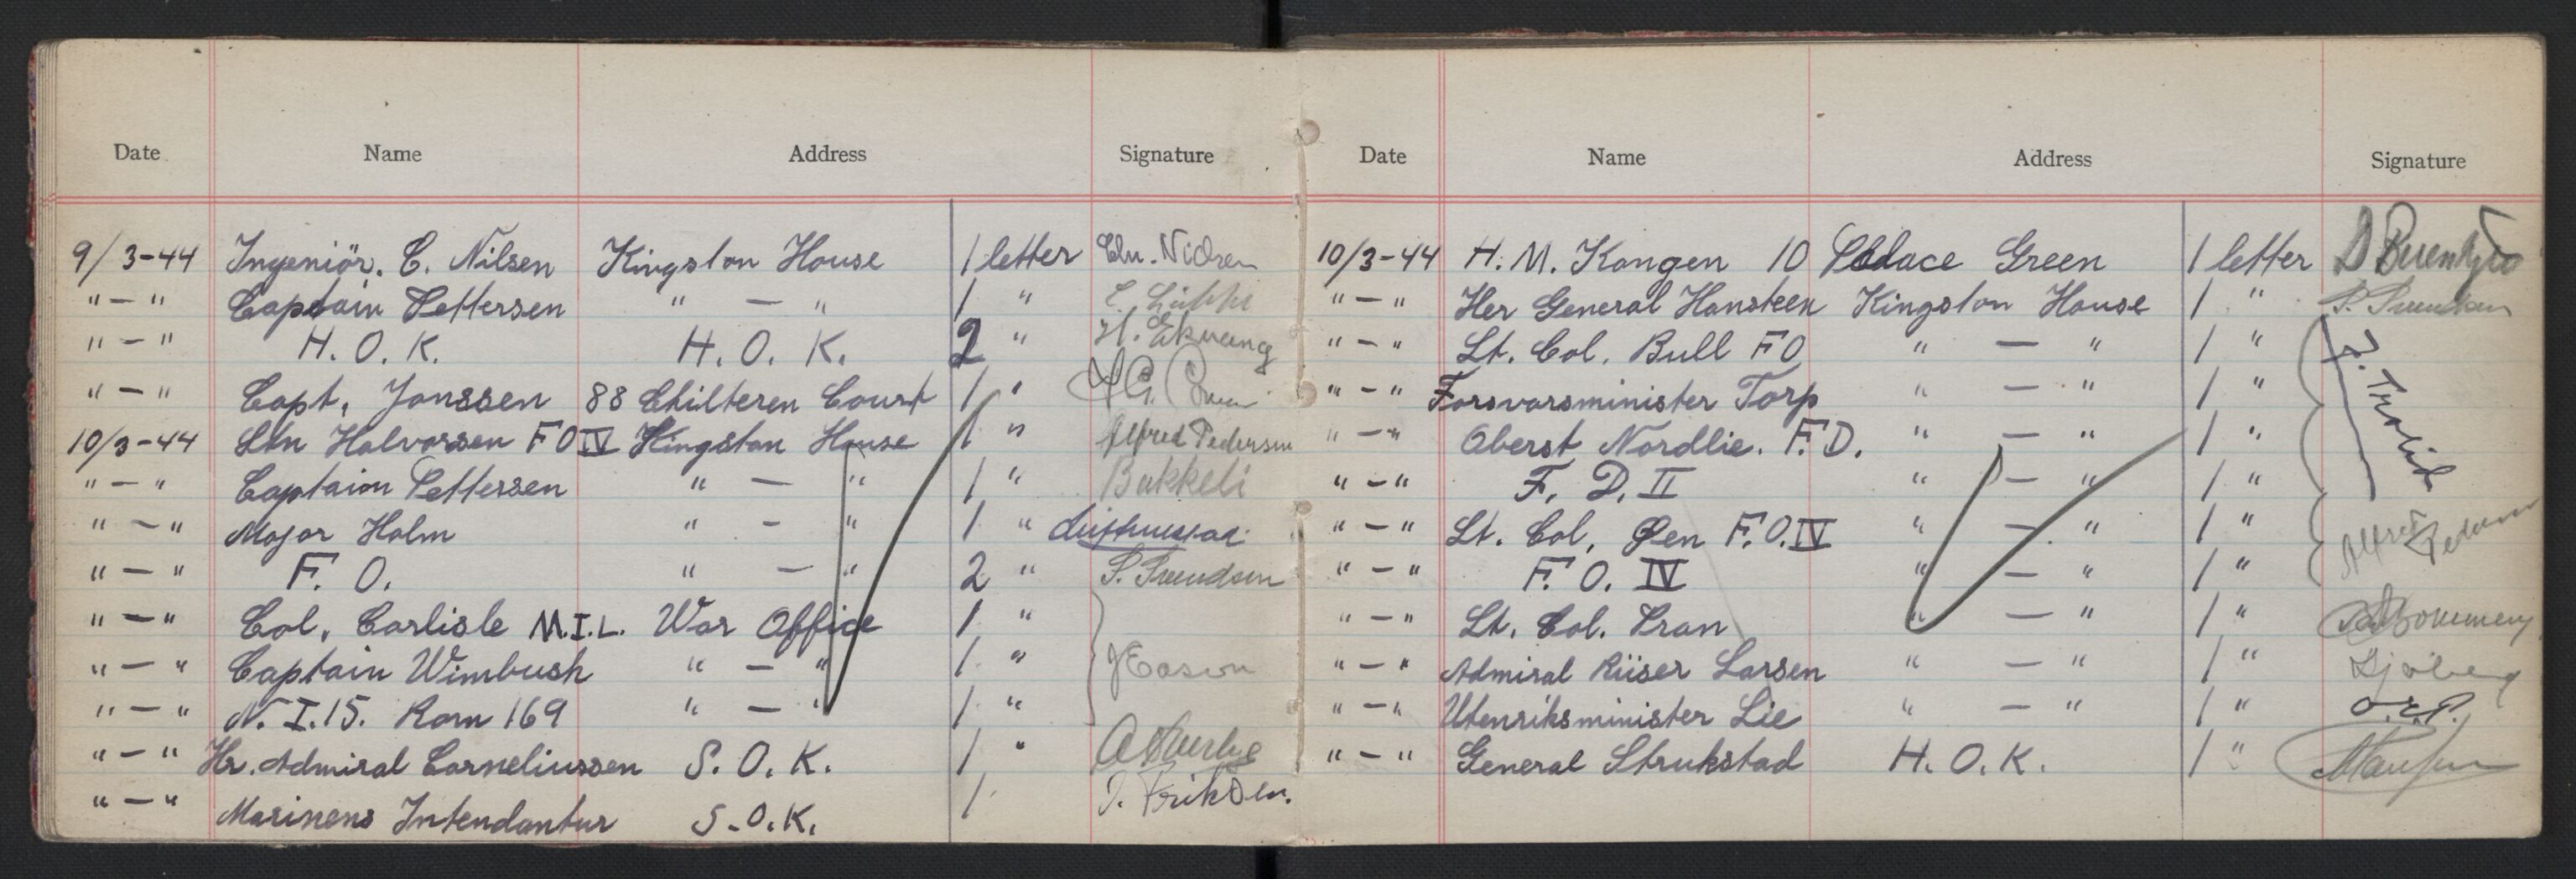 Date Name Address Signature
9/3-44 Ingeniör. C. Nilsen Kingston House 1 letter Chr. Nielsen
"-" Captain Pettersen " - " 1 "
"-" H. O. K. H. O. K. 2 " H. Ekvang
"-" Capt. Jonssen 88 Chilteren Court 1 "
10/3-44 Ltn Halvorsen F O IV Kingston House 1 " Alfred Pedersen
"-" Captaion Pettersen " - " 1 " Bakkeli
"-" Major Holm " - " 1 "
"-" F. O. " - " 2 " S. Svendsen
"-" Col. Carlisle M.I.L. War Office 1 "
"-" Captain Wimbush " - " 1 " J Eason
"-" N. I. 15. Rom 169 " - " 1 "
"-" Hr. Admiral Corneliussen S. O. K. 1 "
"-" Marinens Intendantur S. O. K. 1
Date Name Address Signature
10/3-44 H. M. Kongen 10 Palace Green 1 letter
"-" Her General Hansteen Kingston House 1 " S. Svendsen
"-" Lt. Col. Bull F O " - " 1 "
"-" Forsvarsminister Torp " - " 1 "
"-" Oberst Nordlie. F. D. " - " 1 "
"-" F. D. II " - " 1 "
"-" Lt. Col. Øen F. O. IV " - " 1 " Alfred Pedersen
"-" F. O. IV " - " 1 "
"-" Lt. Col. Pran " - " 1 "
"-" Admiral Riiser Larsen " - " 1 " Sjøberg
"-" Utenriksminister Lie " - " 1 " O.R.P.
"-" General Strukstad H. O. K. 1 "